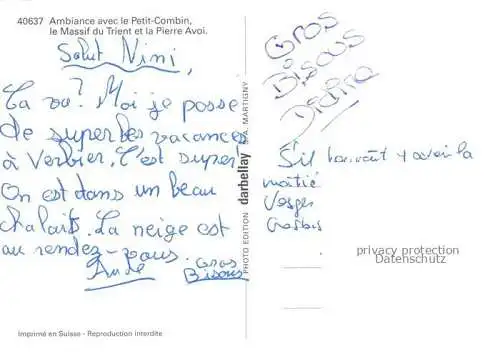 40637 Ambiance avec le Petit-Combin,
le Massif du Trient et la Pierre Avoi.
Salut Nini,
Ça va? Moi je passe
de superbes vacances
à Verbier. C'est super!
On est dans un beau
chalait. La neige est
au rendez-vous.
Gros
Bisous
Imprimé en Suisse - Reproduction interdite
PHOTO EDITION darbellay S.A. MARTIGNY
Gros
Bisous
S'il
privacy protection
Datenschutz